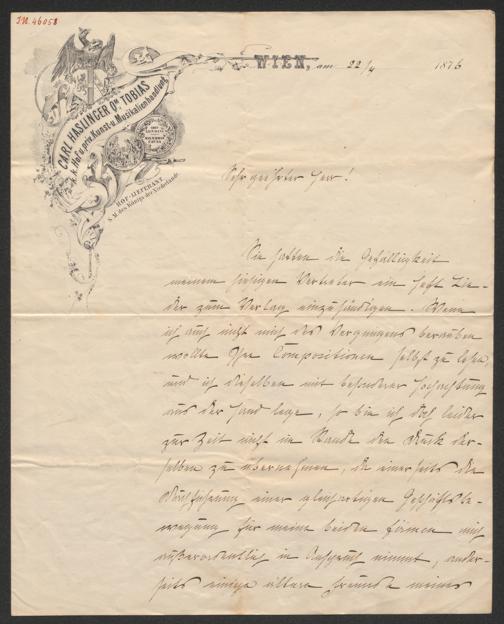 I.N. 46058
CARL HASLINGER Qm TOBIAS
k.k. Hof u. priv. Kunst- u. Musikalienhandlung
HOF-LIEFERANT
S. M. des Königs der Niederlande
WIEN, am 22/4 1876
Sehr geehrter Herr!
Sie hatten die Gefälligkeit
meinem hiesigen Vertreter ein Heft Lie-
der zum Verlag einzuhändigen. Wenn
ich auch nicht mich des Vergnügens berauben
wollte Ihre Compositionen selbst zu lesen,
und ich dieselben mit besonderer Hochachtung
aus der Hand lege, so bin ich doch leider
zur Zeit nicht im Stande den Druck der-
selben zu übernehmen, da einerseits die
Durchführung einer gleichartigen Geschäftsbe-
wegung für meine beiden Firmen mich
außerordentlich in Anspruch nimmt, ander-
seits einige ältere Freunde meines